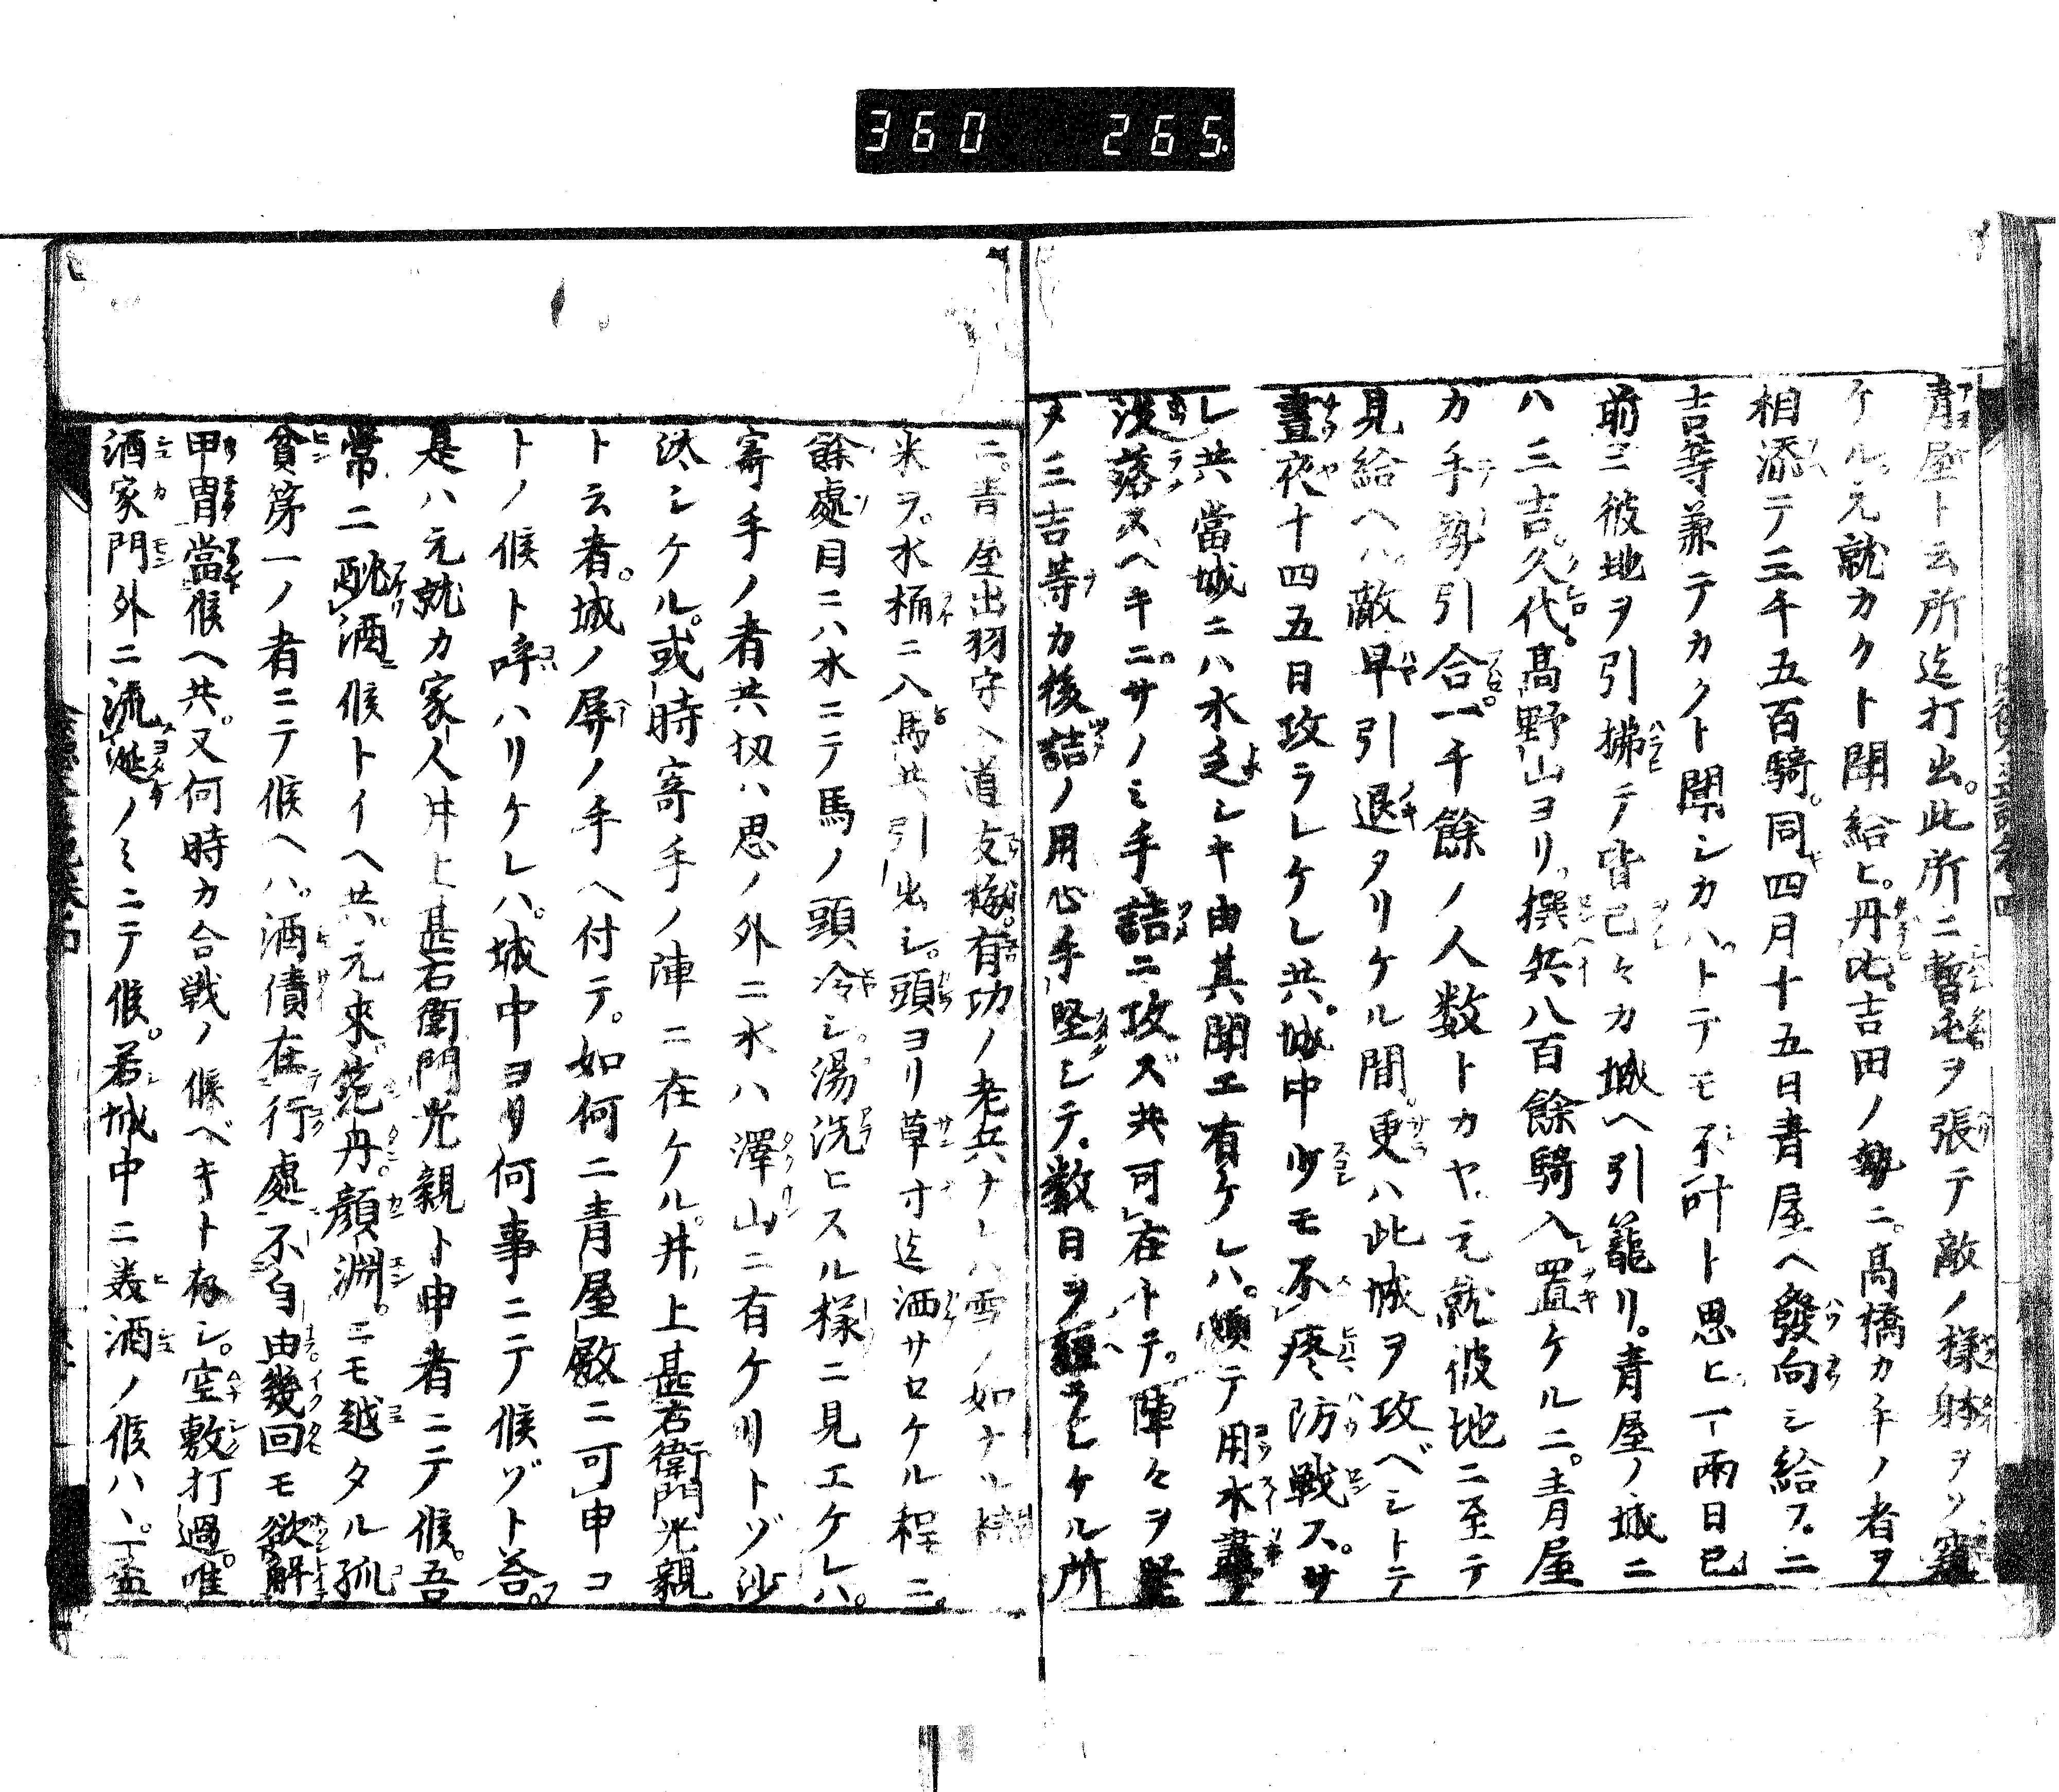 360 265
青屋ト云所迄打出。此所ニ暫屯ヲ張テ敵ノ様躰ヲソ窺
ケル。元就カクト聞給ヒ。丹比吉田ノ勢ニ。高橋カ手ノ者ヲ
相添テ三千五百騎。同四月十五日青屋ヘ發向シ給フ。三
吉等兼テカクト聞シカハ。トテモ不叶ト思ヒ一兩日已
前ニ彼地ヲ引拂テ皆己々カ城ヘ引籠リ。青屋ノ城ニ
ハ三吉。久代。高野山ヨリ。撰兵八百餘騎入置ケルニ。青屋
カ手勢引合。一千餘ノ人数トカヤ。元就彼地ニ至テ
見給ヘハ。敵早引退タリケル間。更ハ此城ヲ攻ベシトテ
晝夜十四五日攻ラレケレ共。城中少モ不疼防戦ス。サ
レ共當城ニハ水乏シキ由其聞エ有ケレハ。頓テ用水盡
没落スヘキニ。サノミ手詰ニ攻ズ共可在トテ。陣々ヲ堅
メ三吉等カ後詰ノ用心手堅シテ。数日ヲ經ラレケル所
ニ。青屋出羽守入道友梅。有功ノ老兵ナレハ雪ノ如ナル
米ヲ。水桶ニ入馬共引出シ。頭ヨリ草寸迄洒サセケル程ニ。
餘處目ニハ水ニテ馬ノ頭冷シ。湯洗ヒスル様ニ見エケレハ。
寄手ノ者共扨ハ思ノ外ニ水ハ澤山ニ有ケリトゾ沙
汰シケル。或時寄手ノ陣ニ在ケル。井上甚右衛門光親
ト云者。城ノ屏ノ手ヘ付テ。如何ニ青屋殿ニ可申コ
トノ候ト呼ハリケレハ。城中ヨリ何事ニテ候ゾト答。
是ハ元就カ家人井上甚右衛門光親ト申者ニテ候。吾
常ニ酖酒候トイヘ共。元來範丹。顔淵。ニモ越タル孤
貧第一ノ者ニテ候ヘハ。酒債在行處不自由幾回モ欲解
甲冑當候ヘ共。又何時カ合戦ノ候ベキト存シ。空敷打過。唯
酒家門外ニ流涎ノミニテ候。若城中ニ美酒ノ候ハヽ。一盃